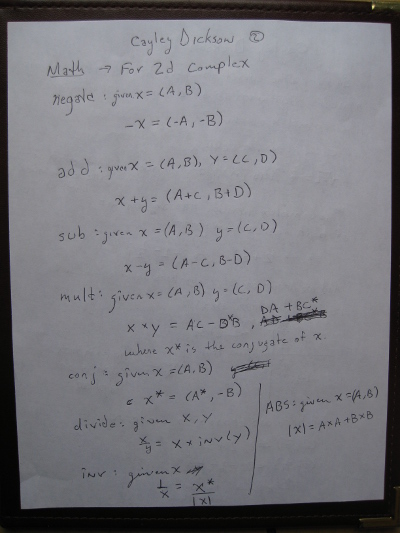 Cayley Dickson ②
Math → For 2d Complex
negate : given x = (A, B)
-x = (-A, -B)
add : given x = (A, B), Y = (C, D)
x + y = (A+C, B+D)
sub : given x = (A, B) y = (C, D)
x-y = (A-C, B-D)
mult : given x = (A, B) y = (C, D)
x × y = AC - D*B , DA + BC*
where x* is the conjugate of x
conj : given x = (A, B)
x* = (A*, -B)
divide : given x, y
x/y = x × inv(y)
inv : given x
1/x = x*/|x|
ABS : given x = (A, B)
|x| = A×A + B×B